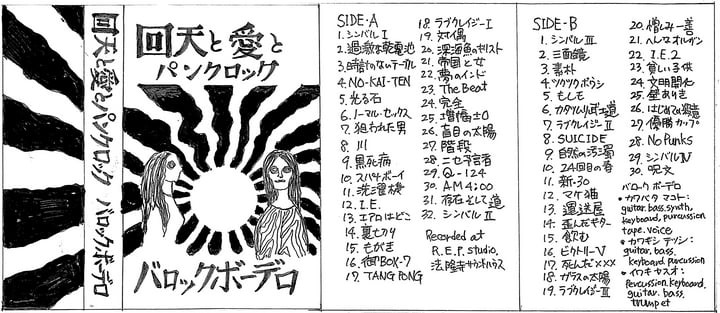 回天と愛とパンクロック バロックボーデロ
回天と愛と
パンクロック
バロックボーデロ
SIDE-A
1. シンバル I
2. 過激な乾電池
3. 時計のないテーブル
4. NO-KAI-TEN
5. 光る石
6. ノーマル・セックス
7. 狙われた男
8. 川
9. 黒死病
10. スパナボーイ
11. 洗濯機
12. I.E.
13. エアロはどこ
14. 裏セカソ
15. もがき
16. 御BOX-7
17. TANG PONG
18. ラブクレイジーI
19. 対偶
20. 深海魚のキリスト
21. 帝国と女
22. 夢のインド
23. The Beat
24. 完全
25. 増幅士0
26. 盲目の太陽
27. 階段
28. ニセ予言者
29. Q-124
30. AM4:00
31. 存在として道
32. シンバル II
Recorded at
R.E.P. studio.
法隆寺サウンドハウス
SIDE-B
1. シンバル III
2. 三面鏡
3. 素朴
4. ツクツクボウシ
5. もしモ
6. カタツムリ武士道
7. ラブクレイジーII
8. SUICIDE
9. 自然の汚濁
10. 24回目の春
11. 新-30
12. マケ猫
13. 運送屋
14. 歪んだギター
15. 飲む
16. ビクトリーV
17. 死んだ×××
18. ガラスの太陽
19. ラブクレイジーIII
20. 憎しみ一善
21. へんなオルガン
22. I.E.2
23. 貧しい子供
24. 文明開化
25. 壁ありき
26. はじめの
27. 優勝カップ
28. No Punks
29. シンバルIV
30. 呪文
バロック ボーデロ
・カワバタ マコト:
guitar. bass. synth,
keyboard, purcussion
tape. voice
・カワギシ テツシ:
guitar. bass.
keyboard. purcussion
・イワキ ヤスオ:
Percussion. keyboard.
guitar. bass.
trumpet